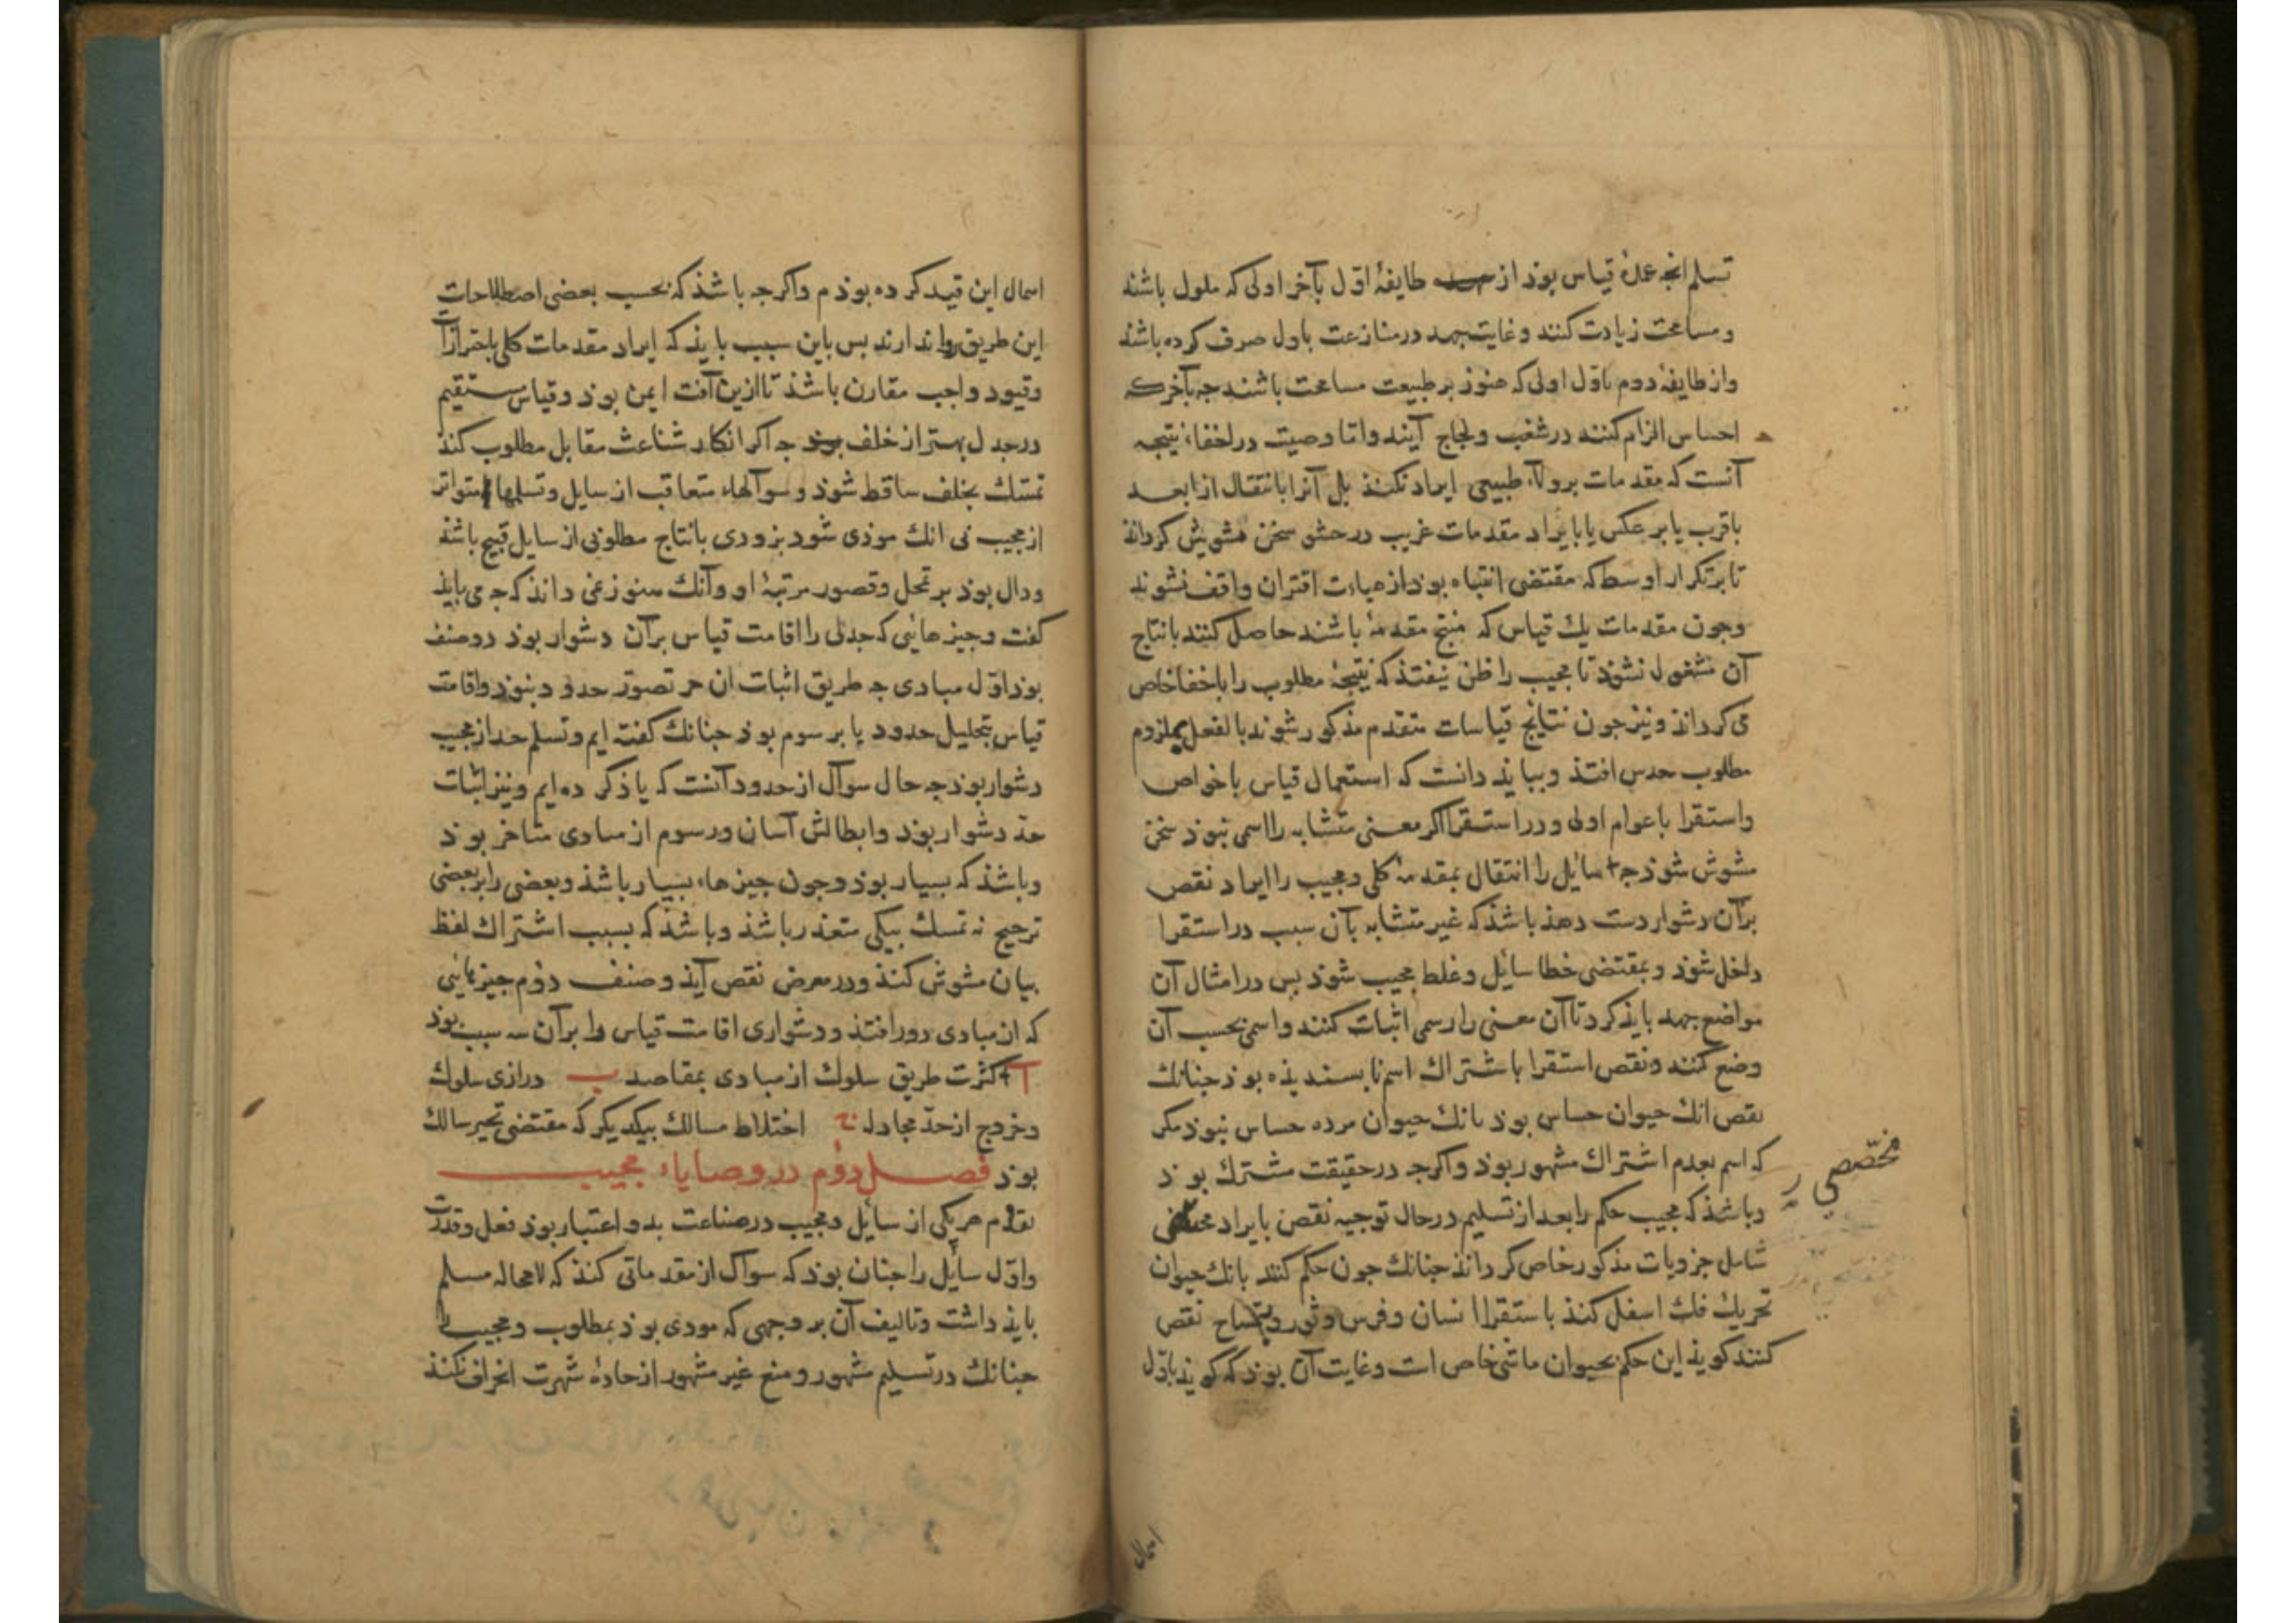 تسلم انچه عمدهٔ قیاس بوذ از طایفهٔ اوّل بآخر اولی که ملول باشند
و مسامحت زیادت کنند و غایت جهد در منازعت باول صرف کرده باشند
و از طایفهٔ دوم باوّل اولی که هنوز بر طبیعت مسامحت باشند جه بآخر که
احساس الزام کنند در شغب و لجاج آیند و اما وصیت در اخفاء نتیجه
آنست که مقدمات بر ولاء طبیعی ایراد نکنند بل آنرا بانتقال از ابعد
باقرب یا بر عکس یا بایراد مقدمات غریب در حشو سخن مشوش کردانند
تا بر تکرار اوسط که مقتضی انتباه بوذ از هیات اقتران واقف نشوند
وجون مقدمات یك قیاس که منتج مقدمهٔ باشند حاصل کنند بانتاج
آن مشغول نشوند تا مجیب را ظن نیفتذ که نتیجهٔ مطلوب را باخفا خاص
می کردانذ و نیز جون نتایج قیاسات متقدم مذکور شوند بالفعل بملزوم
مطلوب حدس افتذ و ببایذ دانست که استعمال قیاس با خواص
واستقرا با عوام اولی و در استقرا اکر معنی متشابه را اسمی نبوذ سخن
مشوش شوذ جه سایل را انتقال بمقدمهٔ کلی و مجیب را ایراد نقص
برآن دشوار دست دهذ باشذ که غیر متشابه بآن سبب در استقرا
داخل شوذ و بمقتضی خطا سائل و غلط مجیب شوذ بس در امثال آن
مواضع جهد بایذ کرد تا آن معنی را رسمی اثبات کنند و اسمی بحسب آن
وضع کنند و نقص استقرا باشتراك اسم نا بسندیذه بوذ جنانك
نقص انك حیوان حساس بوذ بانك حیوان مرده حساس نبوذ مکر
که اسم بعدم اشتراك مشهور بوذ و اکرجه در حقیقت مشترك بوذ
و باشذ که مجیب حکم را بعد از تسلیم در حال توجیه نقص بایراد
مخصصی
شامل جزویات مذکور خاص کردانذ جنانك جون حکم کنند بانك حیوان
تحریك فك اسفل کنذ باستقرا انسان و فرس و ثور و بتمساح نقص
کنند کویذ این حکم بحیوان ماشی خاص است و غایت آن بوذ که کویذ باوّل
امال
امال این قید کرده بوذم و اکرجه باشذ که بحسب بعضی اصطلاحات
این طریق روا ندارند بس باین سبب بایذ که ایراد مقدمات کلی باحترازات
وقیود واجب مقارن باشذ تا ازین آفت ایمن بوذ و قیاس مستقیم
در جدل بهتر از خلف بوذ جه اکر انکار شناعت مقابل مطلوب کنذ
تمسّك بخلف ساقط شوذ و سوآلهاء متعاقب از سایل و تسلمهاء متواتر
از مجیب بی انك موذی شود بزودی بانتاج مطلوبی از سایل قبیح باشذ
ودال بوذ بر تمحل و قصور مرتبهٔ او و آنك هنوز نمی دانذ که جه می بایذ
کفت و جیزهائی که جدلی را اقامت قیاس برآن دشوار بوذ دو صنف
بوذ اوّل مبادی جه طریق اثبات ان جز تصوّر حدود نبوذ و اقامت
قیاس بتحلیل حدود یا برسوم بوذ جنانك کفته ایم و تسلم حد از مجیب
دشوار بوذ جه حال سوآل از حدود آنست که یاذ کرده ایم و نیز اثبات
حدّ دشوار بوذ و ابطالش آسان و رسوم از مبادی متاخر بوذ
و باشذ که بسیار بوذ وجون جیزهاء بسیار باشذ و بعضی را بر بعضی
ترجیح نه تمسك بیکی متعذر باشذ و باشذ که بسبب اشتراك لفظ
بیان مشوش کنذ و در معرض نقص آیذ و صنف دوّم جیزهائی
که از مبادی دور افتذ و دشواری اقامت قیاس را برآن سه سبب بوذ
آ کثرت طریق سلوك از مبادی بمقاصد ب درازی سلوك
و خروج از حدّ مجادله ج اختلاط مسالك بیکدیکر که مقتضی تحیر سالك
بوذ فصل دوّم در وصایاء مجیب
تقدّم هر یکی از سائل و مجیب در صناعت بدو اعتبار بوذ فعل و قدرت
و اوّل سائل را جنان بوذ که سوآل از مقدماتی کنذ که لامحاله مسلم
بایذ داشت و تالیف آن بر وجهی که مودی بوذ بمطلوب و مجیب را
جنانك در تسلیم مشهور و منع غیر مشهور از جادهٔ شهرت انحراف نکنذ